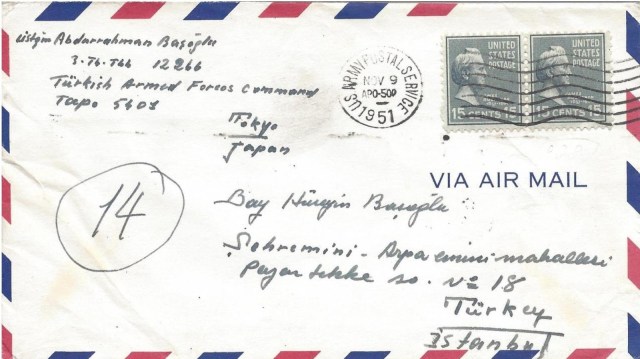 üsteğm Abdurrahman Başoğlu
3. Tb. 12266
Türkish Armed Forces Command
Tapo 5401
Tokyo
Japan
U.S. ARMY POSTAL SERVICE
NOV 9
APO-
1951
UNITED STATES POSTAGE
15 CENTS 15
UNITED STATES POSTAGE
15 CENTS 15
VIA AIR MAIL
14
Bay Hüseyin Başoğlu
Şehremini - Arpa emini mahallesi
Pazar tekke so. No 18
Türkey
İstanbul